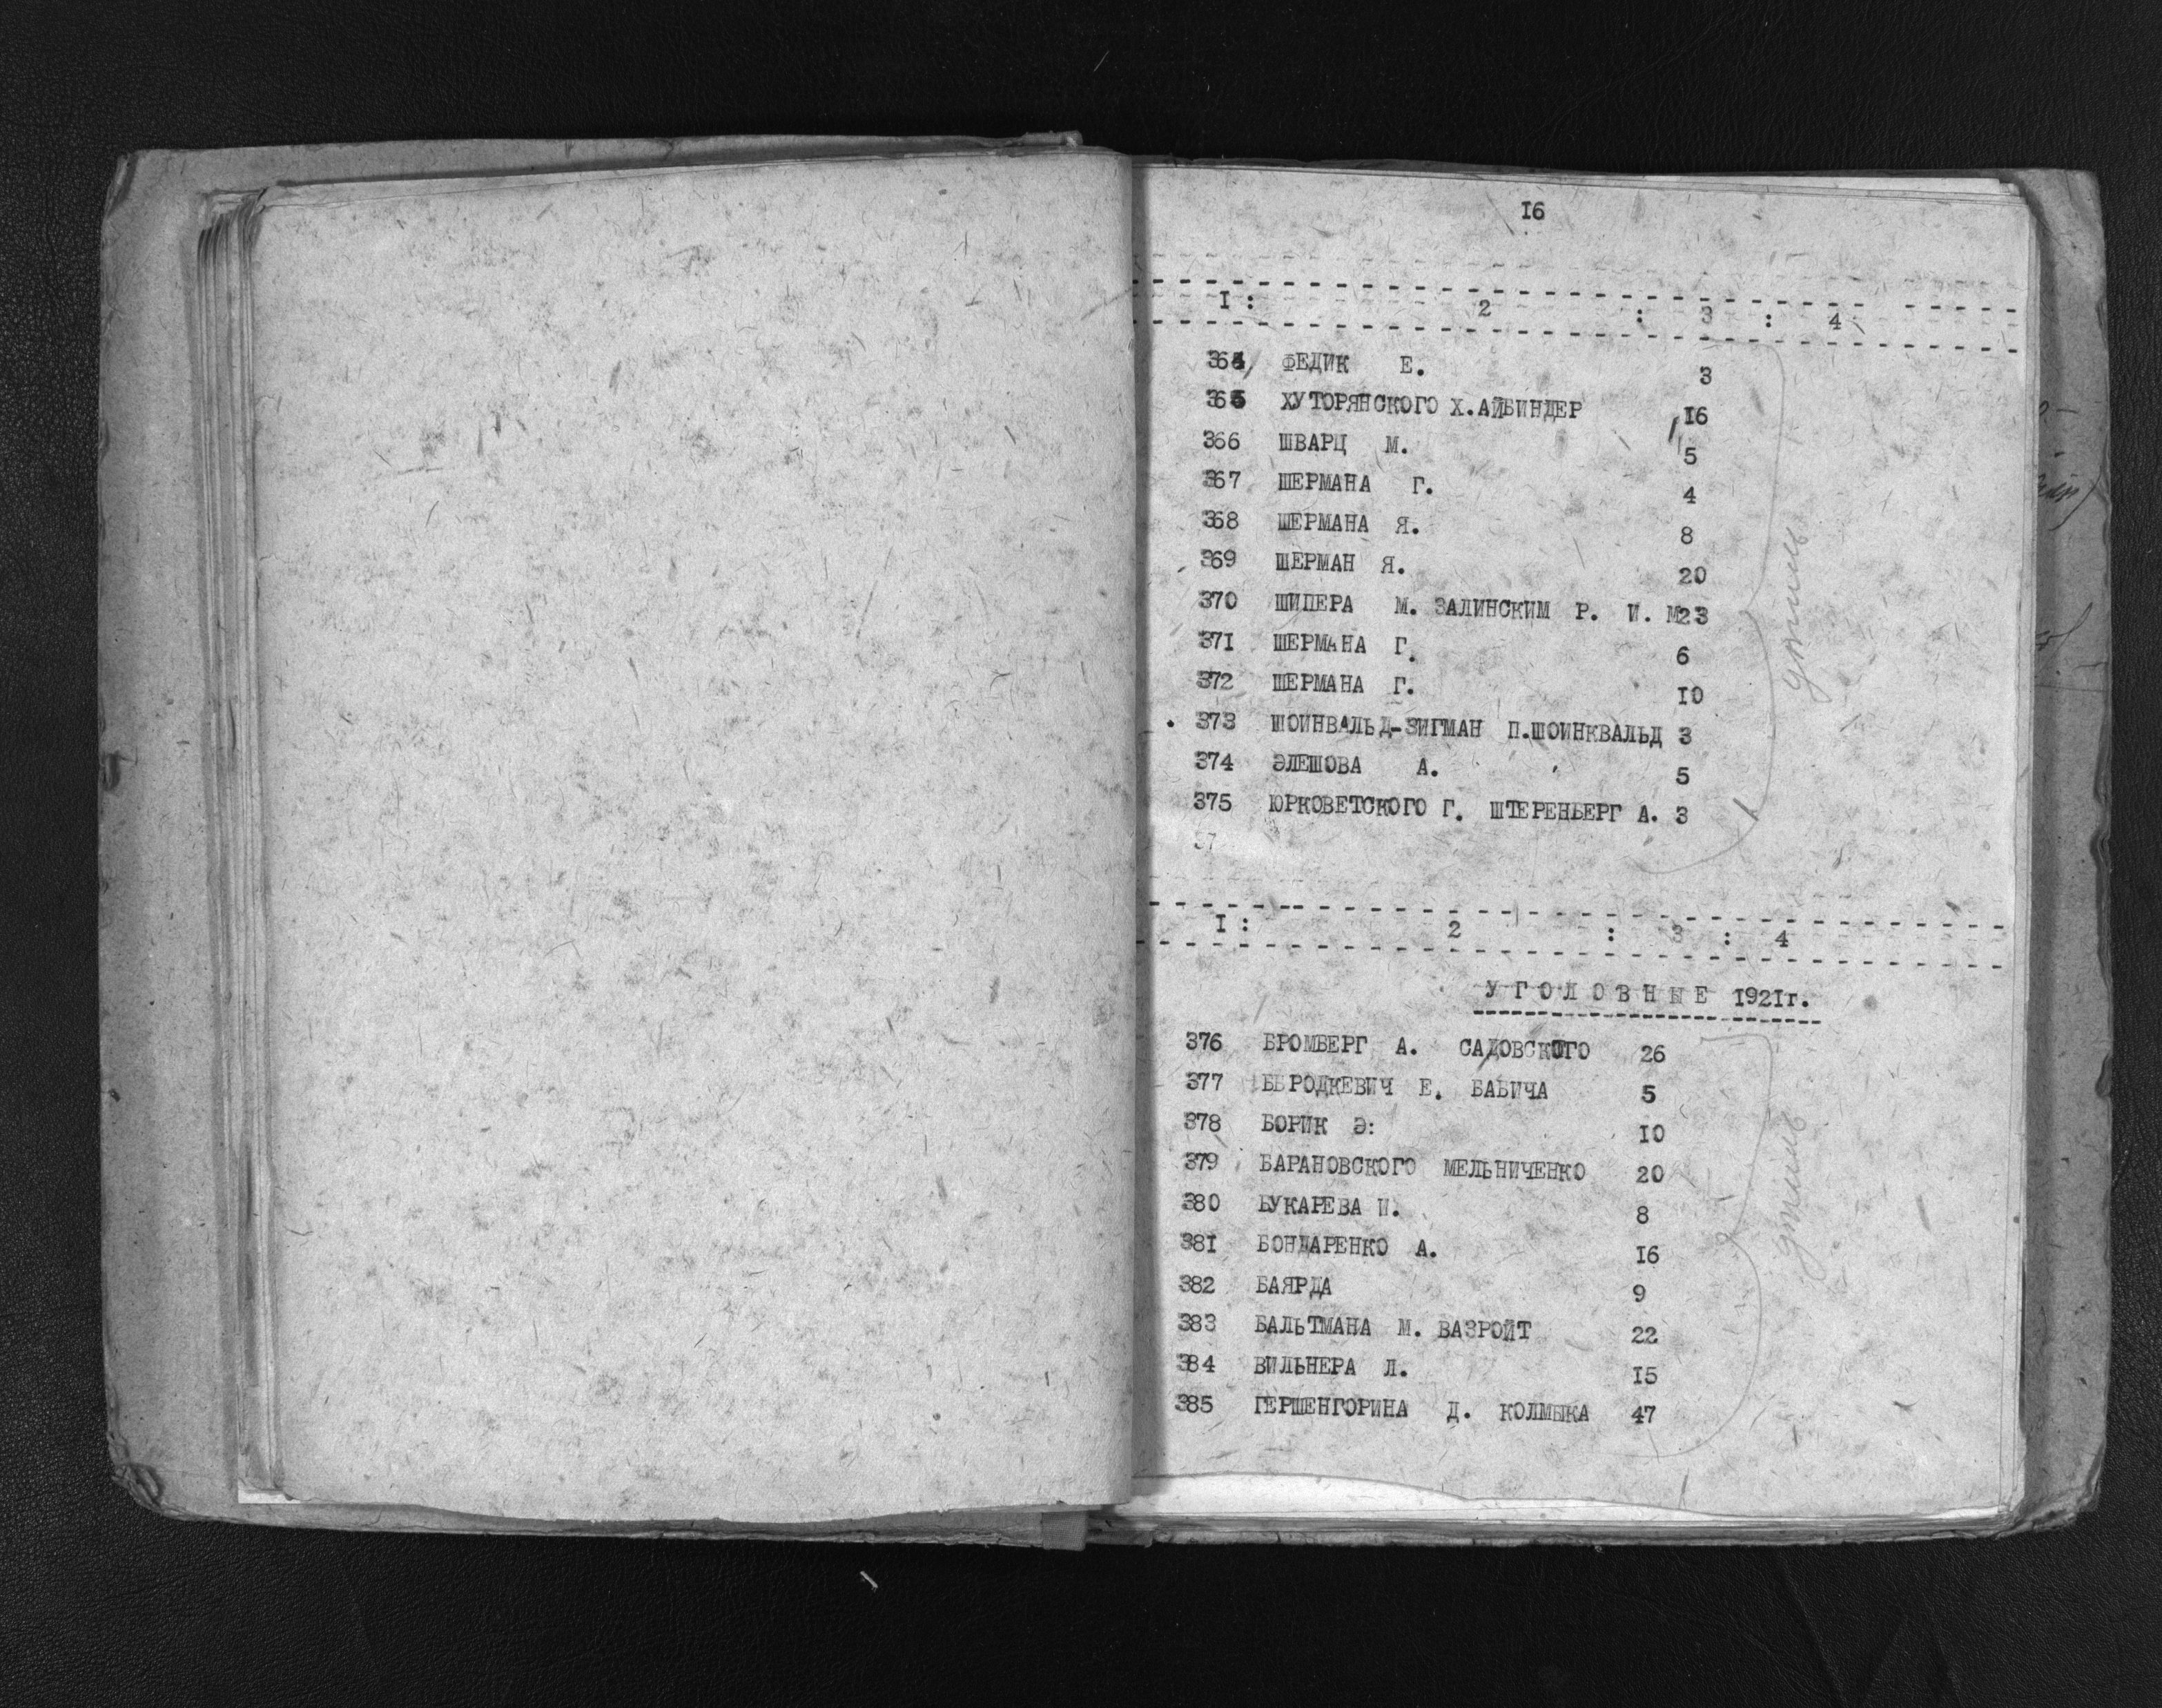 I6
I : 2 : 3 : 4
364 ФЕДИК Е. 3
365 ХУТОРЯНСКОГО Х.АЙБИНДЕР I6
366 ШВАРЦ М. 5
367 ШЕРМАНА Г. 4
368 ШЕРМАНА Я. 8
369 ШЕРМАН Я. 20
370 ШИПЕРА М. ЗАЛИНСКИМ Р. И. М23
371 ШЕРМАНА Г. 6
372 ШЕРМАНА Г. I0
373 ШОИНВАЛЬД-ЗИГМАН П.ШОИНКВАЛЬД 3
374 ЭЛЕШОВА А. 5
375 ЮРКОВЕТСКОГО Г. ШТЕРЕНБЕРГ А. 3
37
I : 2 : 3 : 4
У Г О Л О В Н Ы Е I92Iг.
376 БРОМБЕРГ А. САДОВСКОГО 26
377 БЕРОДКЕВИЧ Е. БАБИЧА 5
378 БОРИК Э: I0
379 БАРАНОВСКОГО МЕЛЬНИЧЕНКО 20
380 БУКАРЕВА И. 8
38I БОНДАРЕНКО А. I6
382 БАЯРДА 9
383 БАЛЬТМАНА М. ВАЗРОЙТ 22
384 ВИЛЬНЕРА Л. I5
385 ГЕРШЕНГОРИНА Д. КОЛМЫКА 47
утиль
утиль